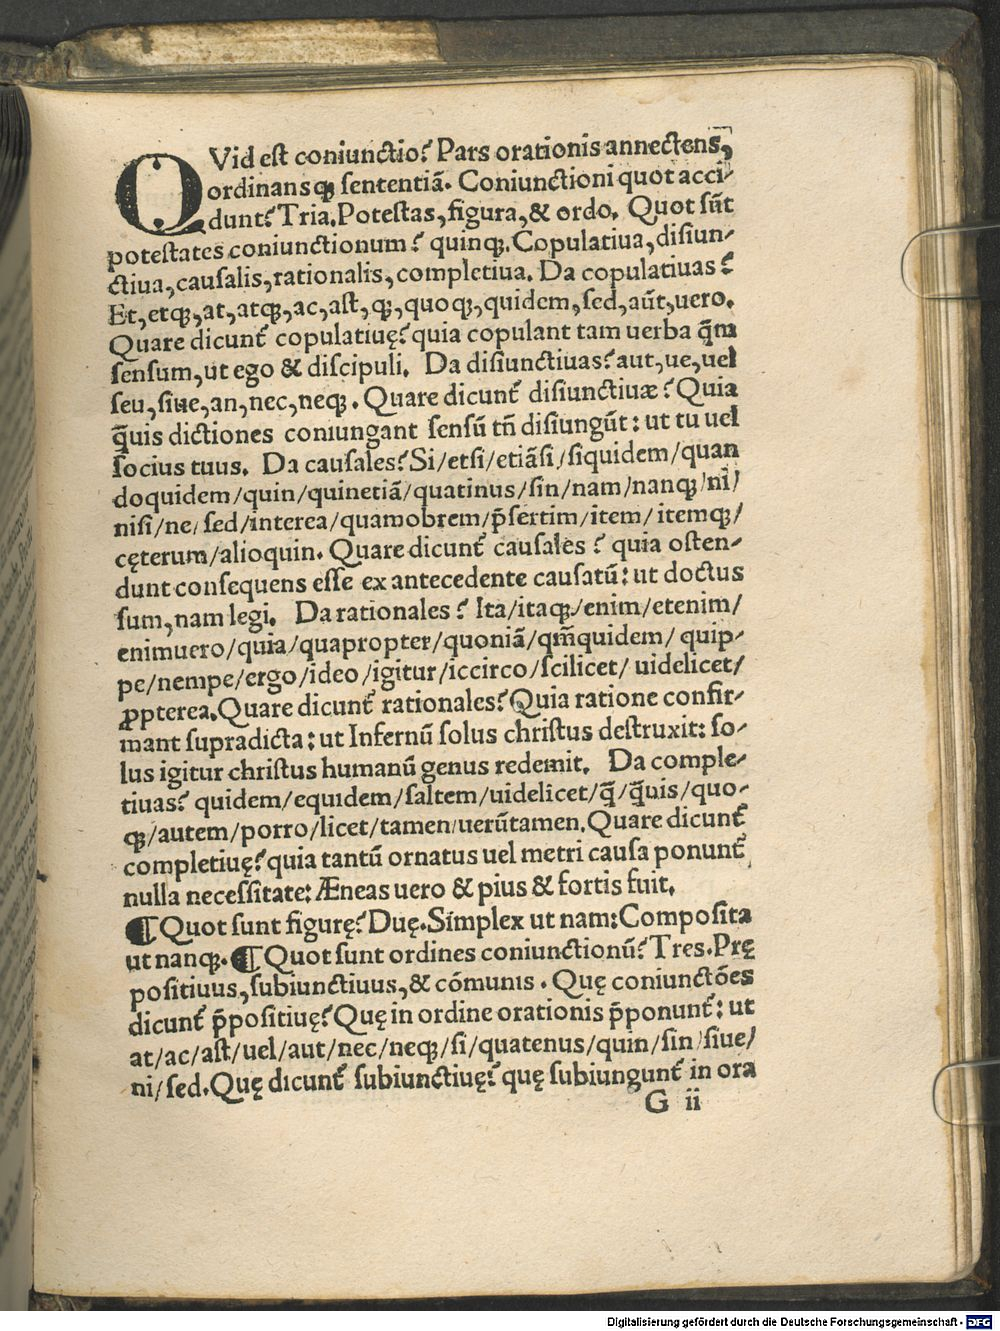 QVid est coniunctio? Pars orationis annectens,
ordinansqꝫ sententiā. Coniunctioni quot acci-
dunt? Tria. Potestas, figura, & ordo. Quot sūt
potestates coniunctionum? quinqꝫ. Copulatiua, disiun-
ctiua, causalis, rationalis, completiua. Da copulatiuas?
Et, etqꝫ, at, atqꝫ, ac, ast, qꝫ, quoqꝫ, quidem, sed, aūt, uero.
Quare dicunt᷑ copulatiuę? quia copulant tam uerba q̄m
sensum, ut ego & discipuli. Da disiunctiuas? aut, ue, uel
seu, siue, an, nec, neqꝫ. Quare dicunt᷑ disiunctiuæ? Quia
q̄uis dictiones coniungant sensū tn̄ disiungūt: ut tu uel
socius tuus. Da causales? Si/etsi/etiāsi/siquidem/quan
doquidem/quin/quinetiā/quatinus/sin/nam/nanqꝫ/ni/
nisi/ne/sed/interea/quamobrem/p̄sertim/item/itemqꝫ/
cęterum/alioquin. Quare dicunt᷑ causales? quia osten-
dunt consequens esse ex antecedente causatū: ut doctus
sum, nam legi. Da rationales? Ita/itaqꝫ/enim/etenim/
enimuero/quia/quapropter/quoniā/qm̄quidem/quip-
pe/nempe/ergo/ideo/igitur/iccirco/scilicet/uidelicet/
ꝓpterea. Quare dicunt᷑ rationales? Quia ratione confir-
mant supradicta: ut Infernū solus christus destruxit: so-
lus igitur christus humanū genus redemit. Da comple-
tiuas? quidem/equidem/saltem/uidelicet/q̄/q̄uis/quo-
qꝫ/autem/porro/licet/tamen/uerūtamen. Quare dicunt᷑
completiuę? quia tantū ornatus uel metri causa ponunt᷑,
nulla necessitate: Æneas uero & pius & fortis fuit.
¶ Quot sunt figurę? Duę. Simplex ut nam: Composita
ut nanqꝫ. ¶ Quot sunt ordines coniunctionū? Tres. Prę
positiuus, subiunctiuus, & cómunis. Quę coniunctōes
dicunt᷑ p̄positiuę? Quę in ordine orationis p̄ponunt᷑: ut
at/ac/ast/uel/aut/nec/neqꝫ/si/quatenus/quin/sin/siue/
ni/sed. Quę dicunt᷑ subiunctiuę? quę subiungunt᷑ in ora
G ii
Digitalisierung gefördert durch die Deutsche Forschungsgemeinschaft - DFG